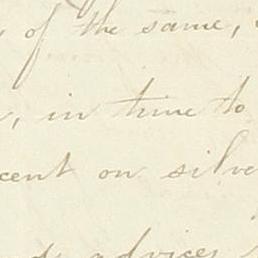 of the same,
, in time to
cent on silve
advices